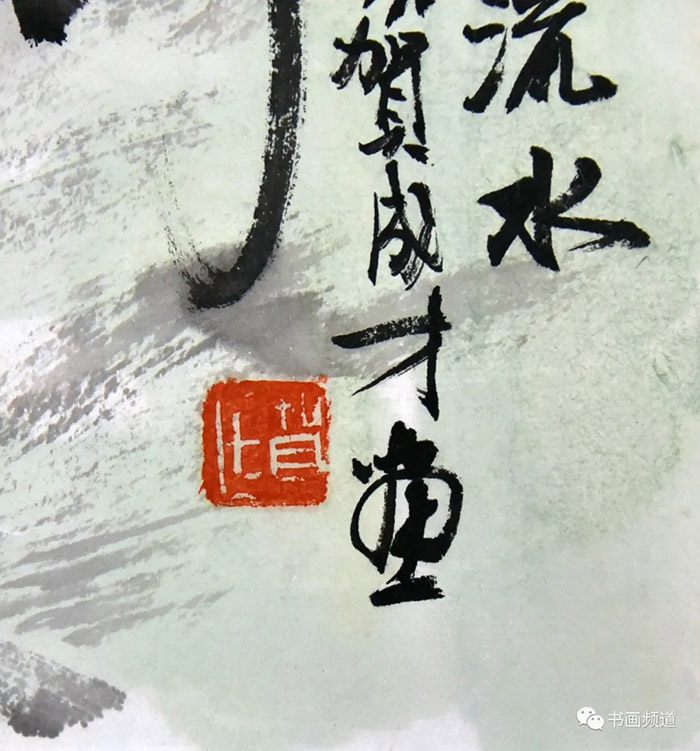 流水
賀成才畫
书画频道